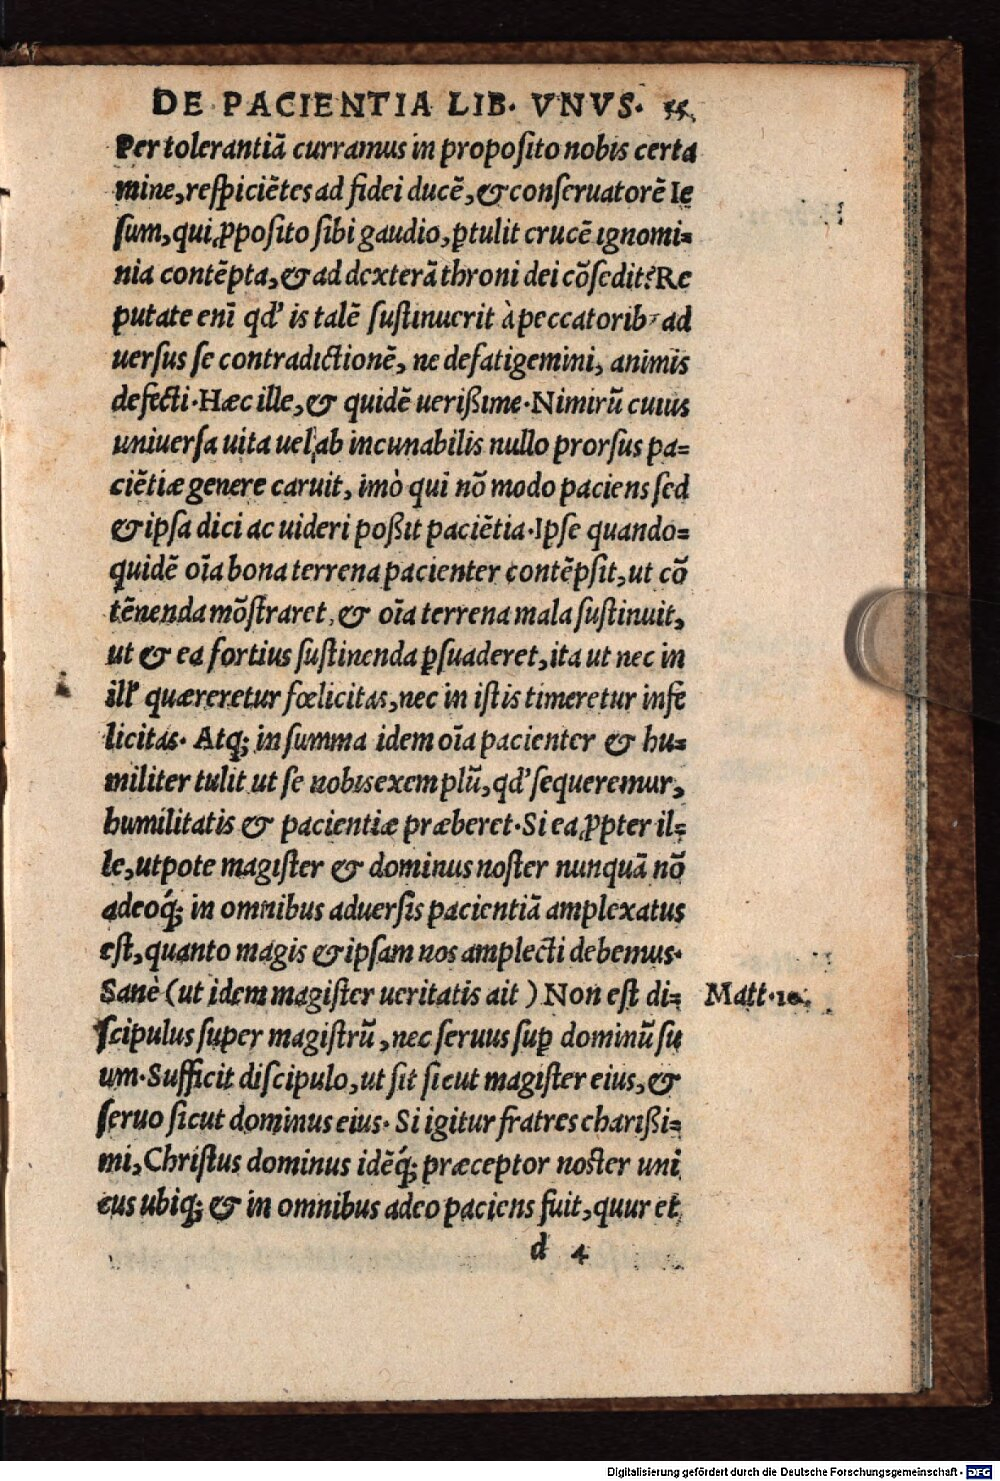 DE PACIENTIA LIB. VNVS. 55.
Per tolerantiā curramus in proposito nobis certa
mine, respiciētes ad fidei ducē, & conseruatorē Ie
sum, qui ꝓposito sibi gaudio, ꝑtulit crucē ignomi=
nia contēpta, & ad dexterā throni dei cōsedit? Re
putate enī qd' is talē sustinuerit à peccatorib' ad
uersus se contradictionē, ne defatigemini, animis
defecti. Hæc ille, & quidē uerißime. Nimirū cuius
uniuersa uita uel ab incunabilis nullo prorsus pa=
ciētiæ genere caruit, imò qui nō modo paciens sed
& ipsa dici ac uideri poßit paciētia. Ipse quando=
quidē oīa bona terrena pacienter contēpsit, ut cō
tēnenda mōstraret, & oīa terrena mala sustinuit,
ut & ea fortius sustinenda ꝑsuaderet, ita ut nec in
ill' quæreretur fœlicitas, nec in istis timeretur infe
licitas. Atq; in summa idem oīa pacienter & hu=
militer tulit ut se nobis exemplū, qd' sequeremur,
humilitatis & pacientiæ præberet. Si ea ꝓpter il=
le, utpote magister & dominus noster nunquā nō
adeoq́; in omnibus aduersis pacientiā amplexatus
est, quanto magis & ipsam nos amplecti debemus.
Sanè (ut idem magister ueritatis ait) Non est di= Matt. 10.
scipulus super magistrū, nec seruus suꝑ dominū su
um. Sufficit discipulo, ut sit sicut magister eius, &
seruo sicut dominus eius. Si igitur fratres charißi=
mi, Christus dominus idēq́; præceptor noster uni
cus ubiq; & in omnibus adeo paciens fuit, quur et
d 4
Digitalisierung gefördert durch die Deutsche Forschungsgemeinschaft - DFG